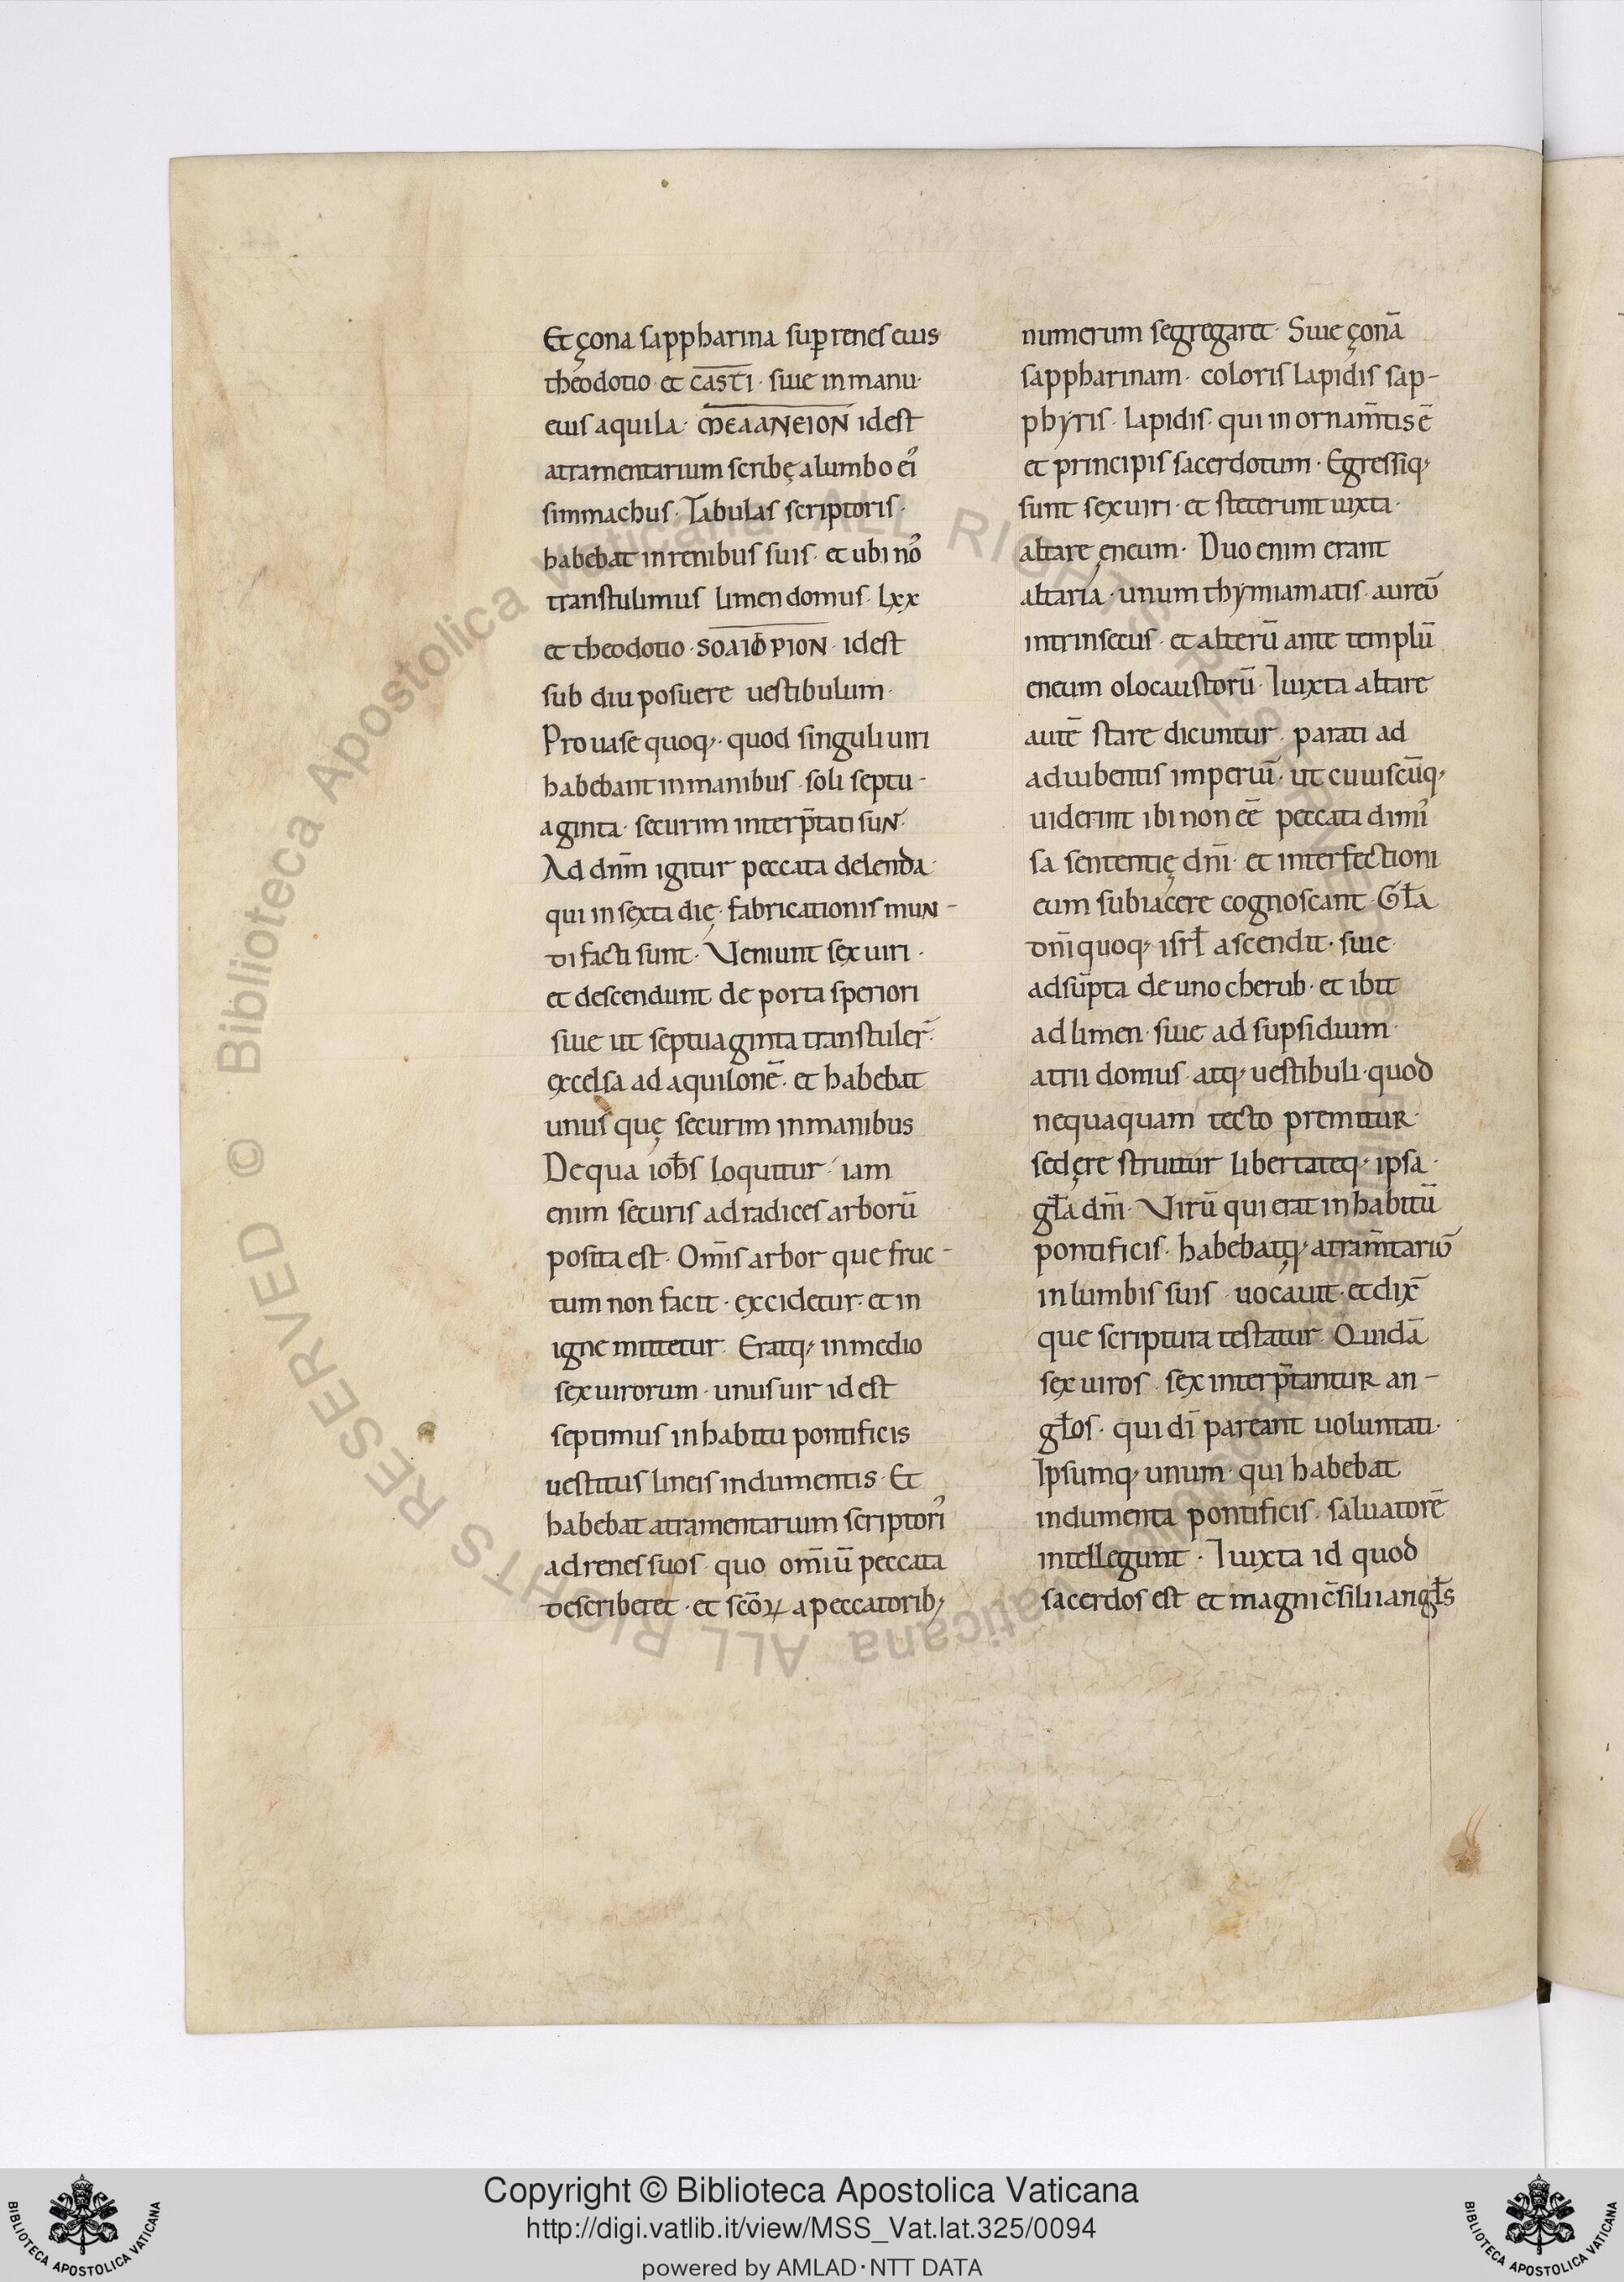 Et çona sappharina sup̱ renes eius
theodotio · et casti · siue in manu ·
eius aquila · ϺΕΛΑΝΕΙΟΝ id est
atramentarium scribę alumbo eiꝰ
simmachus · Tabulas scriptoris ·
habebat in renibus suis · et ubi noꝰ
transtulimus limen domus · lxx
et theodotio · SOAIΘPION · id est
sub diu posuere uestibulum ·
Pro uase quoq; · quod singuli uiri
habebant in manibus · soli septu-
aginta · securim interp̄tati suN ·
Ad dn̄m igitur peccata delenda ·
qui in sexta dię · fabricationis muN-
di facti sunt · Veniunt sex uiri ·
et descendunt de porta speriori
siue ut septuaginta transtuler̄ ·
excelsa ad aquilonē · et habebat
unus quę securim in manibus
De qua ioh̄s loquitur · iam
enim securis ad radices arborū
posita est · Om̄is arbor que fruc-
tum non facit · excidetur · et in
igne mittetur · Eratq; in medio
sex uirorum · unus uir id est
septimus in habitu pontificis
uestitus lineis indumentis · Et
habebat atramentarium scriptoriꝰ
ad renes suos · quo om̄iū peccata
describeret · et sc̄oꝝ a peccatorib;
numerum segregaret · Siue çonā
sappharinam · coloris lapidis sap-
phyris · lapidis · qui in ornam̄tis ē
et principis sacerdotum · Egressiq;
sunt sex uiri · et steterunt iuxta ·
altare ęneum · Duo enim erant
altaria · unum thymiamatis · aureū
intrinsecus · et alterū ante templū
eneum olocaustorū · Iuxta altare
autē stare dicuntur · parati ad
ad iubentis imperiū · ut cuiuscūq;
uiderint ibi non eē peccata dimiꝰ
sa sententię dn̄i · et interfectioni
eum subiacere cognoscant · Gl̄a
dn̄i quoq; isrl̄ ascendit · siue
adsūpta de uno cherub · et ibit
ad limen · siue ad supsiduim ·
atrii domus · atq; uestibuli · quod
nequaquam tecto premituR ·
sed ęre struitur libertateq; ipsa ·
gl̄a dn̄i · Virū qui erat in habitū
pontificis · habebatq; atram̄tariū
in lumbis suis · uocauit · et dix̄
que scriptura testatur · Quidā
sex uiros · sex interp̄tantuR an-
gl̄os · qui dī pareant uoluntati ·
Ipsumq; unum · qui habebat
indumenta pontificis · saluatorē
intellegunt · Iuxta id quod
sacerdos est et magni c̄silii angl̄s
Copyright © Biblioteca Apostolica Vaticana
http://digi.vatlib.it/view/MSS_Vat.lat.325/0094
powered by AMLAD·NTT DATA
© Biblioteca Apostolica Vaticana ALL RIGHTS RESERVED
BIBLIOTECA APOSTOLICA VATICANA
BIBLIOTECA APOSTOLICA VATICANA